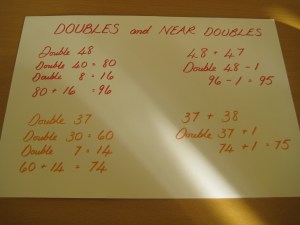 DOUBLES and NEAR DOUBLES
Double 48
Double 40 = 80
Double 8 = 16
80 + 16 = 96
48 + 47
Double 48 - 1
96 - 1 = 95
Double 37
Double 30 = 60
Double 7 = 14
60 + 14 = 74
37 + 38
Double 37 + 1
74 + 1 = 75